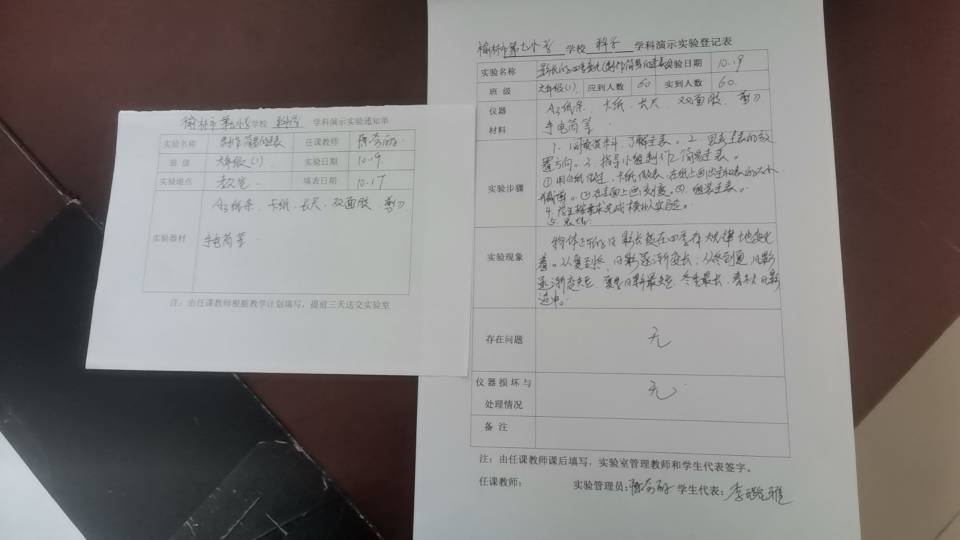 榆林市第 小学 学校 科学 学科演示实验通知单
实验名称 制作简易圭表 任课教师
班 级 六年级(1) 实验日期 10.19
实验地点 教室 填表日期 10.17
实验器材
A3纸条、卡纸、长尺、双面胶、剪刀
手电筒等
注:由任课教师根据教学计划填写,提前三天送交实验室
榆林市第 小学 学校 科学 学科演示实验登记表
实验名称 影长的四季变化(制作简易圭表) 实验日期 10.19
班 级 六年级(1) 应到人数 60 实到人数 60
仪器
材料
A3纸条、卡纸、长尺、双面胶、剪刀
手电筒等
实验步骤
1. 阅读资料,了解圭表。2. 圭表的放
置方向。3. 指导小组制作简易圭表。
①用 纸做圭,卡纸做表,在纸上画出圭和表的大小
②在圭面上画刻度。④ 组装圭表。
4. 学生按要求完成模拟实验。
5.
实验现象
物体 的日影长短在四季有规律地变化
着。从夏到冬,日影逐渐变长;从冬到夏,日影
逐渐变短。夏季日影最短,冬季最长,春秋日影
适中。
存在问题 无
仪器损坏与
处理情况
无
备 注
注:由任课教师课后填写,实验室管理教师和学生代表签字。
任课教师: 实验管理员: 学生代表: